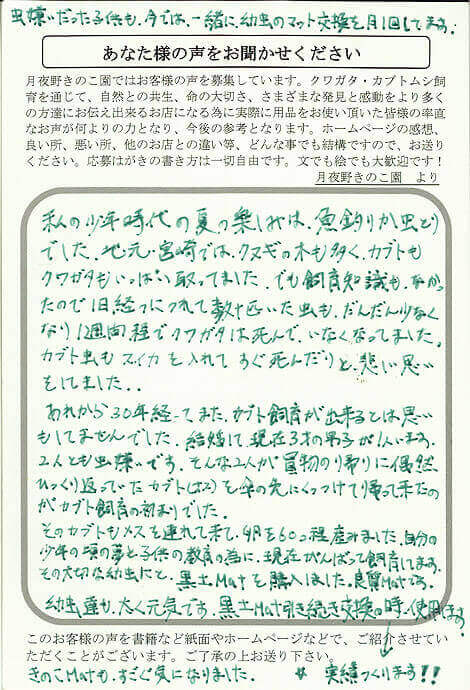 虫嫌いだった子供も、今では、一緒に幼虫のマット交換を月1回してます。
あなた様の声をお聞かせください
月夜野きのこ園ではお客様の声を募集しています。クワガタ・カブトムシ飼
育を通じて、自然との共生、命の大切さ、さまざまな発見と感動をより多く
の方達にお伝え出来るお店になる為に実際に用品をお使い頂いた皆様の率直
なお声が何よりの力となり、今後の参考となります。ホームページの感想、
良い所、悪い所、他のお店との違い等、どんな事でも結構ですので、お送り
ください。応募はがきの書き方は一切自由です。文でも絵でも大歓迎です！
月夜野きのこ園 より
私の少年時代の夏の楽しみは、魚釣りか虫とり
でした。地元・宮崎では、クヌギの木も多く、カブトも
クワガタもいっぱい取ってました。でも飼育知識も、なかっ
たので1日経つにつれて数十匹いた虫も、だんだん少なく
なり1週間程でクワガタは死んで、いなくなってました。
カブト虫もスイカを入れてすぐ死んだりと、悲しい思い
をしてました..
あれから30年経ってまた、カブト飼育が出来るとは思い
もしてませんでした。結婚して、現在3才の男子が1人います。
2人とも虫嫌いです。そんな2人が買物のり帰りに偶然
ひっくり返っていたカブト(オス)を傘の先にくっつけて帰って来たの
がカブト飼育の初まりでした。
そのカブトもメスを連れて来て、卵を60コ程産みました。自分の
少年の頃の夢と子供の教育の為に、現在がんばって飼育してます。
その大切な幼虫にと、黒土Matを購入しました。良質Matです。
幼虫達も、大く元気です。黒土Mat引き続き交換の時、使用します。
このお客様の声を書籍など紙面やホームページなどで、ご紹介させてい
ただくことがございます。ご了承の上お送り下さい。
きのこMatも、すごく気になりました。
実績つくります!!